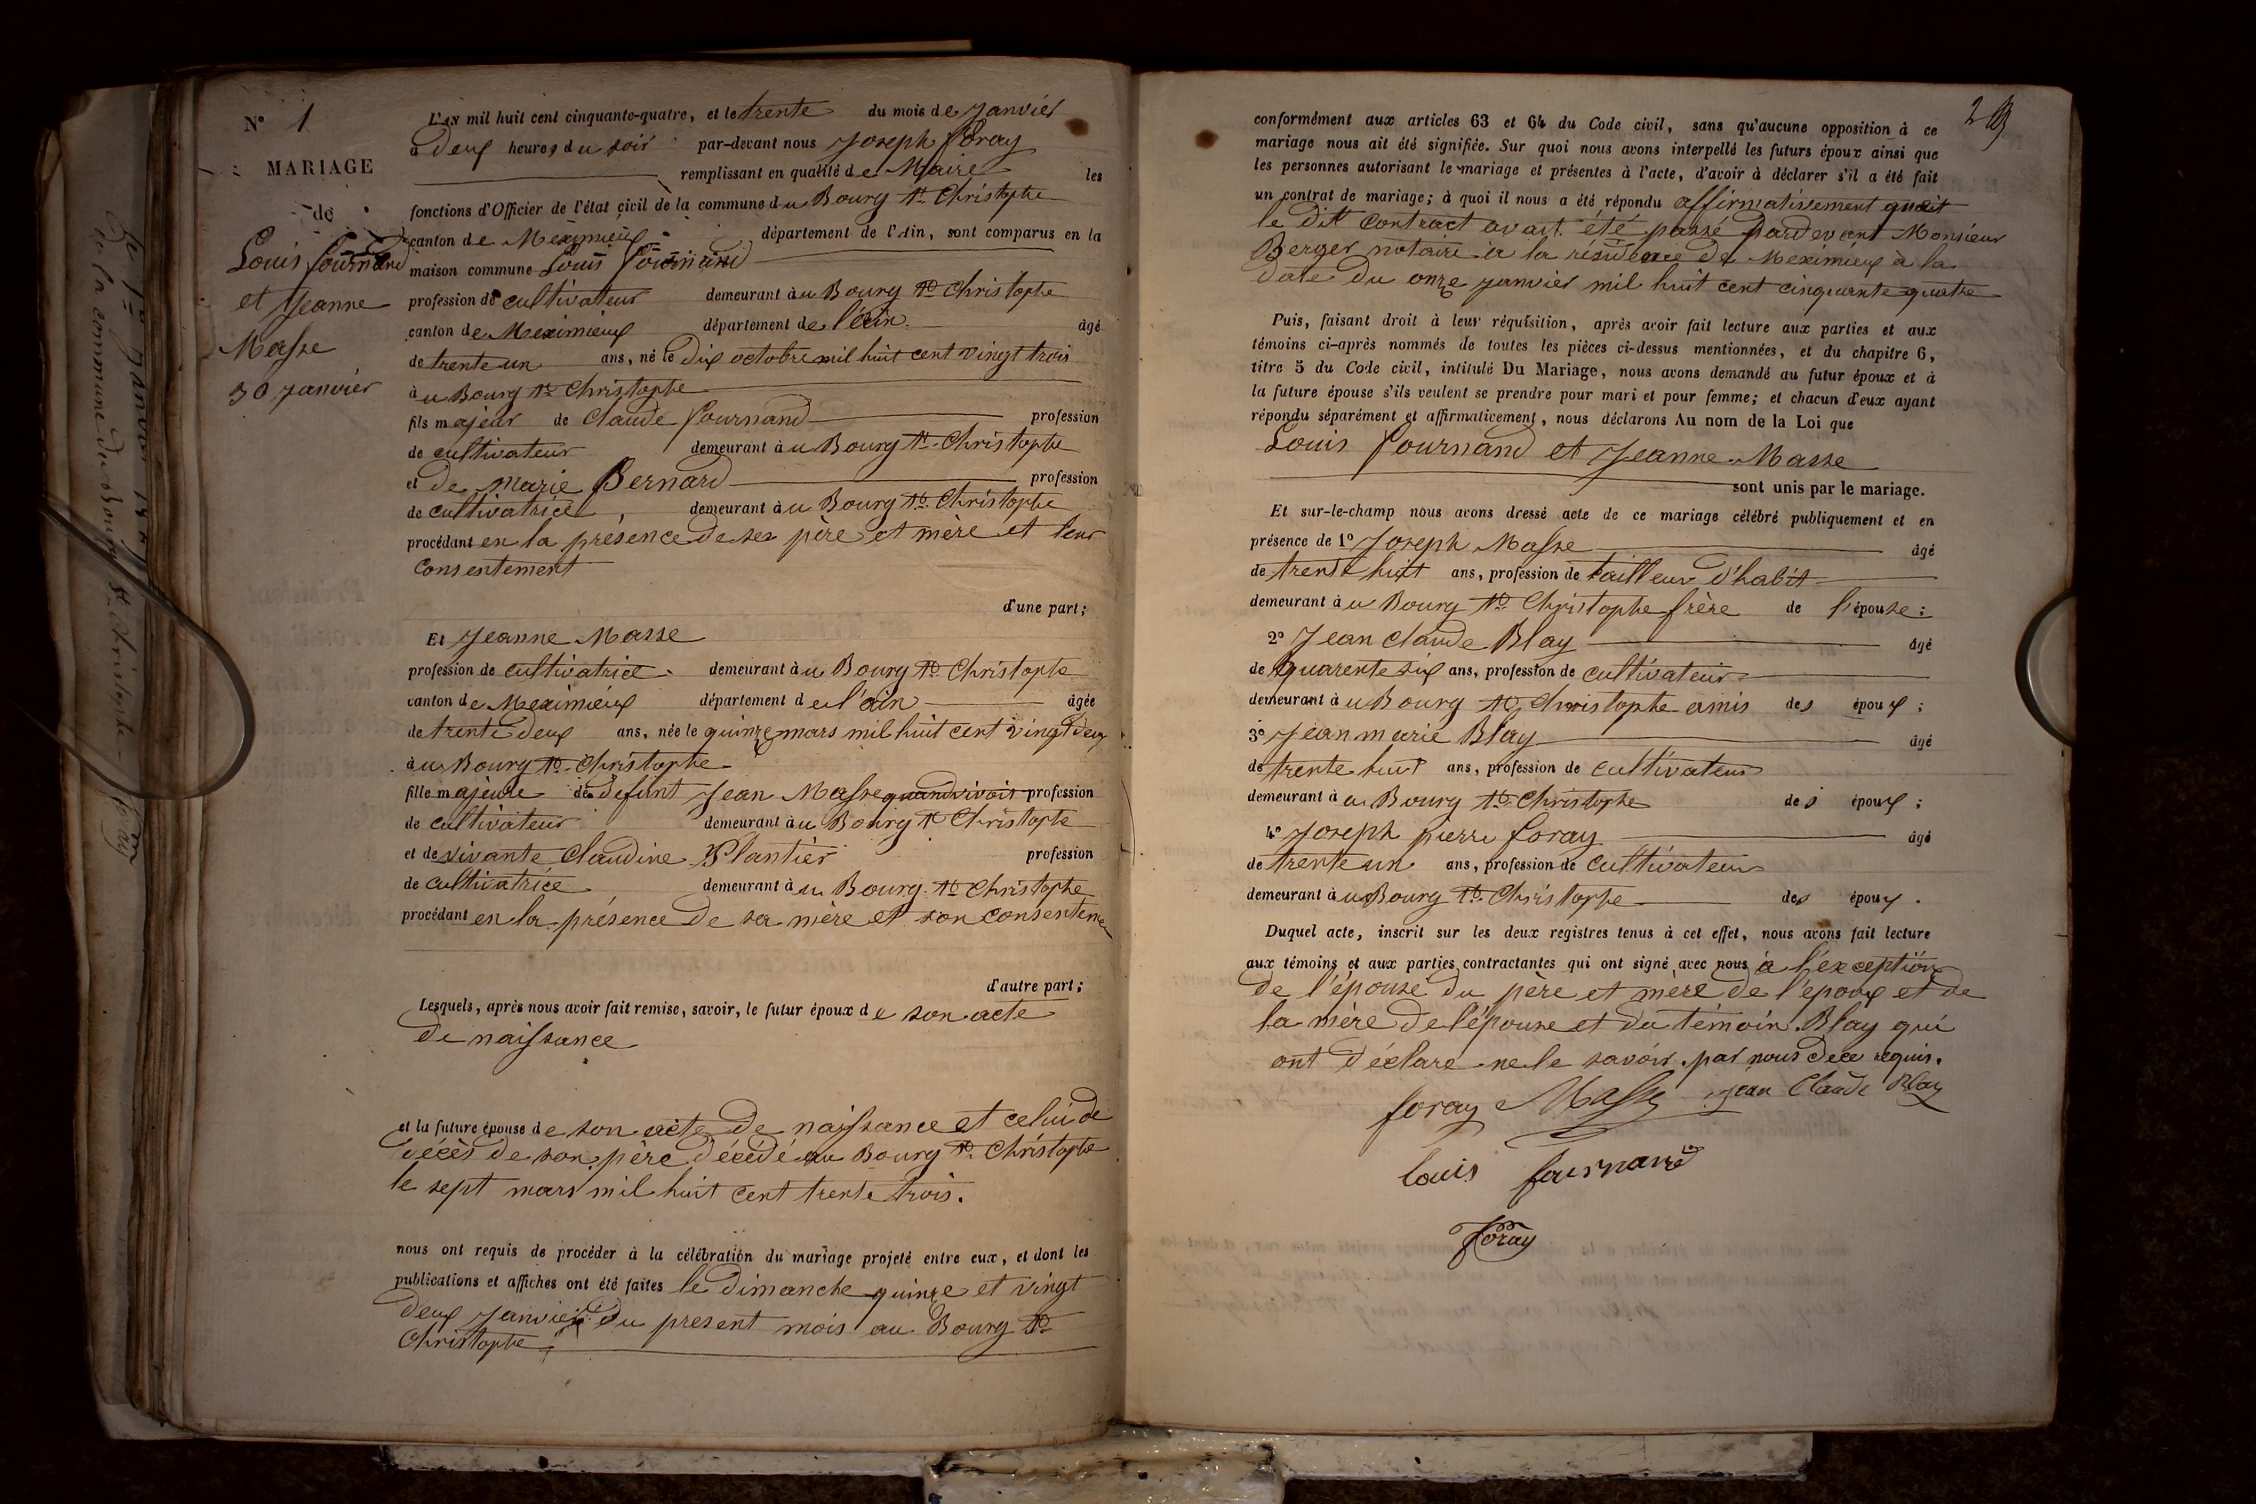 N° 1
MARIAGE
de
Louis fournand
et Jeanne
Masse
30 Janvier
L'an mil huit cent cinquante-quatre, et le trente du mois de Janvier
à deux heures du soir par-devant nous Joseph foray
remplissant en qualité de Maire les
fonctions d'Officier de l'état civil de la commune du Bourg St Christophe
canton de Meximieux département de l'Ain, sont comparus en la
maison commune Louis fournand
profession de cultivateur demeurant au Bourg St Christophe
canton de Meximieux département de l'ain âgé
de trente un ans, né le dix octobre mil huit cent vingt trois
au Bourg St Christophe
fils majeur de Claude fournand profession
de cultivateur demeurant au Bourg St Christophe
et de Marie Bernard profession
de cultivatrice, demeurant au Bourg St Christophe
procédant en la présence de ses père et mère et leur
consentement
d'une part;
Et Jeanne Masse
profession de cultivatrice demeurant au Bourg St Christophe
canton de Meximieux département de l'ain âgée
de trente deux ans, née le quinze mars mil huit cent vingt deux
au Bourg St Christophe
fille majeure de defunt Jean Masse quand vivait profession
de cultivateur demeurant au Bourg St Christophe
et de vivante Claudine Plantier profession
de cultivatrice demeurant au Bourg St Christophe
procédant en la présence de sa mère et son consenteme
d'autre part;
Lesquels, après nous avoir fait remise, savoir, le futur époux de son acte
de naissance
et la future épouse de son acte de naissance et celui de
décès de son père décédé au Bourg St Christophe
le sept mars mil huit cent trente trois.
nous ont requis de procéder à la célébration du mariage projeté entre eux, et dont les
publications et affiches ont été faites le dimanche quinze et vingt
deux Janvier du present mois au Bourg St
Christophe
conformément aux articles 63 et 64 du Code civil, sans qu'aucune opposition à ce
mariage nous ait été signifiée. Sur quoi nous avons interpellé les futurs époux ainsi que
les personnes autorisant le mariage et présentes à l'acte, d'avoir à déclarer s'il a été fait
un contrat de mariage; à quoi il nous a été répondu affirmativement
le dit contract avait été passé pardevant Monsieur
Berger notaire à la résidence de Meximieux à la
date du onze janvier mil huit cent cinquante quatre
Puis, faisant droit à leur réquisition, après avoir fait lecture aux parties et aux
témoins ci-après nommés de toutes les pièces ci-dessus mentionnées, et du chapitre 6,
titre 5 du Code civil, intitulé Du Mariage, nous avons demandé au futur époux et à
la future épouse s'ils veulent se prendre pour mari et pour femme; et chacun d'eux ayant
répondu séparément et affirmativement, nous déclarons Au nom de la Loi que
Louis fournand et Jeanne Masse
sont unis par le mariage.
Et sur-le-champ nous avons dressé acte de ce mariage célébré publiquement et en
présence de 1° Joseph Masse âgé
de trente huit ans, profession de tailleur d'habit
demeurant au Bourg St Christophe frère de l'épouse;
2° Jean Claude Blay âgé
de quarente six ans, profession de cultivateur
demeurant au Bourg St Christophe amis des époux;
3° Jean marie Blay âgé
de trente huit ans, profession de cultivateur
demeurant au Bourg St Christophe des époux;
4° Joseph pierre foray âgé
de trente un ans, profession de cultivateur
demeurant au Bourg St Christophe des époux.
Duquel acte, inscrit sur les deux registres tenus à cet effet, nous avons fait lecture
aux témoins et aux parties contractantes qui ont signé avec nous à l'exception
de l'épouse du père et mère de l'époux et de
la mère de l'épouse et du témoin Blay qui
ont déclare ne le savoir par nous de ce requis.
foray Masse Jean Claude Blay
louis fournand
foray